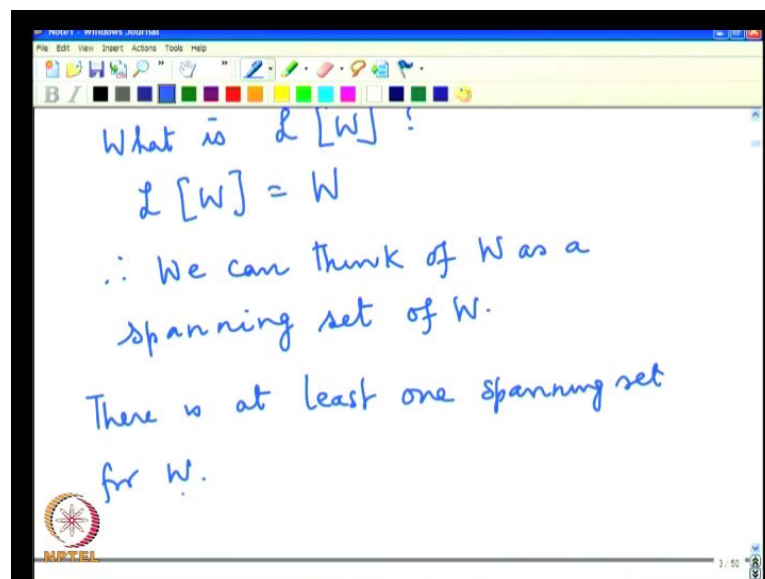 Note1 - Windows Journal
File Edit View Insert Actions Tools Help
B I
What is ℒ [W] ?
ℒ [W] = W
∴ We can think of W as a
spanning set of W.
There is at least one spanning set
for W.
NPTEL
3/50